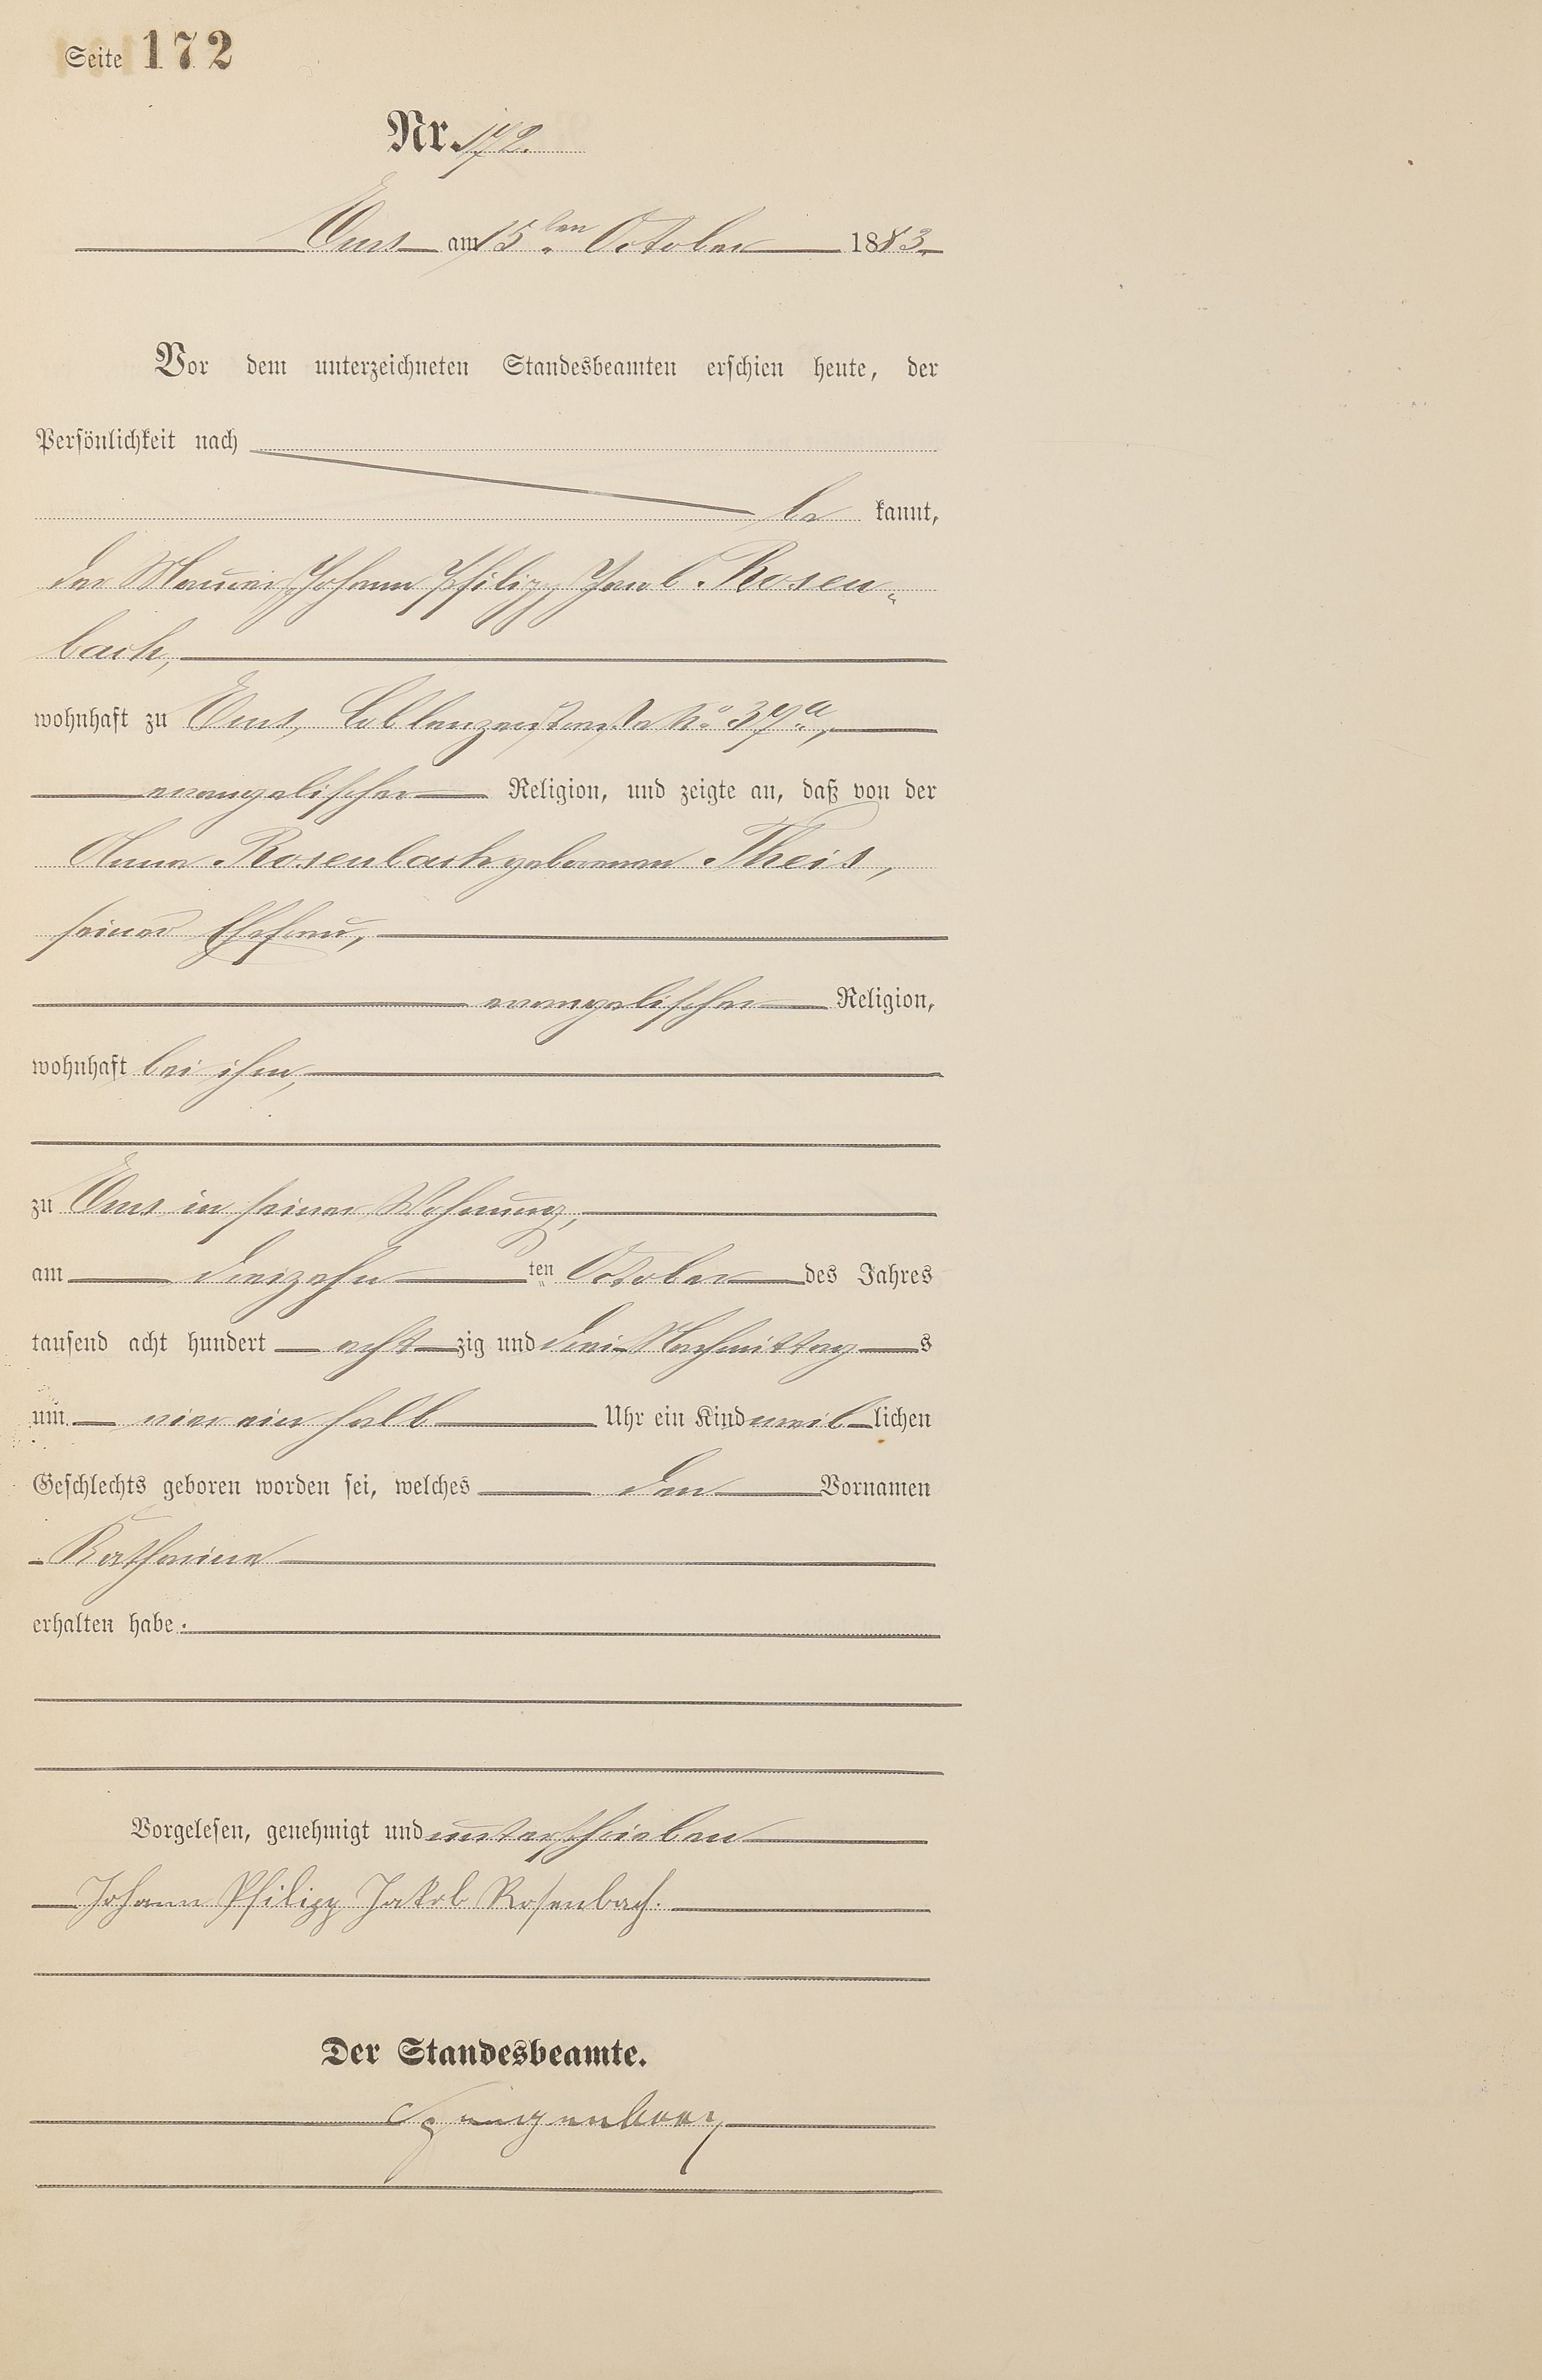 Seite 172
Nr. 172.
Ems am 15ten October 1883.
Vor dem unterzeichneten Standesbeamten erschien heute, der
Persönlichkeit nach
be kannt,
der Maurer Johann Philipp Jacob Rosen-
bach,
wohnhaft zu Ems, Coblenzerstraße No 37a,
evangelischer Religion, und zeigte an, daß von der
Anna Rosenbach geborenen Theis,
seiner Ehefrau,
evangelischer Religion,
wohnhaft bei ihm,
zu Ems in seiner Wohnung,
am dreizehn ten October des Jahres
tausend acht hundert acht zig und drei Nachmittag s
um vier ein halb Uhr ein Kind weib lichen
Geschlechts geboren worden sei, welches den Vornamen
Katharina
erhalten habe.
Vorgelesen, genehmigt und unterschrieben
Johann Philipp Jakob Rosenbach.
Der Standesbeamte.